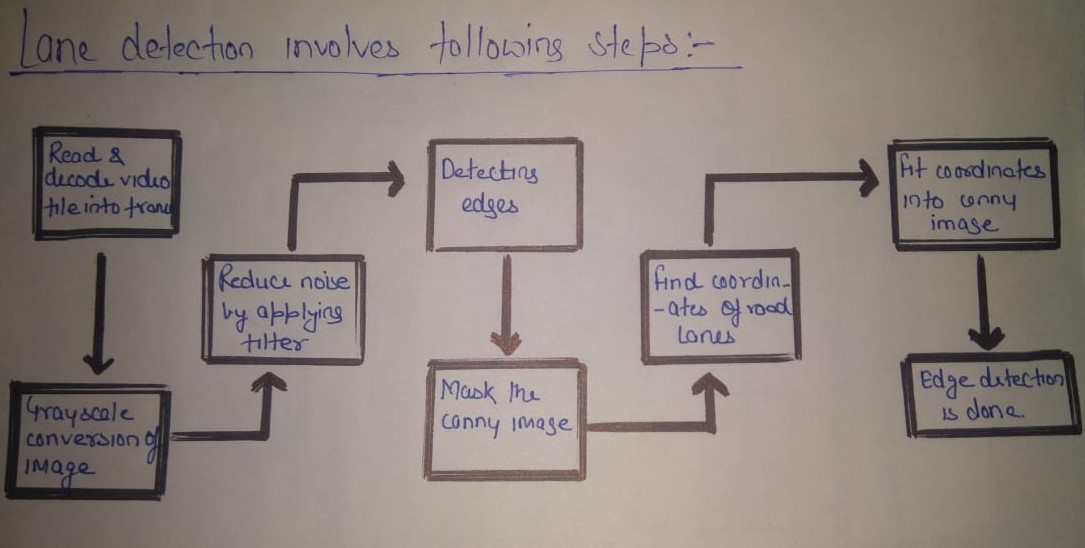 Lane detection involves following steps:-
Read &
decode video
file into frame
Grayscale
conversion of
image
Reduce noise
by applying
filter
Detecting
edges
Mask the
canny image
find coordin-
-ates of road
lanes
fit coordinates
into canny
image
Edge detection
is done.